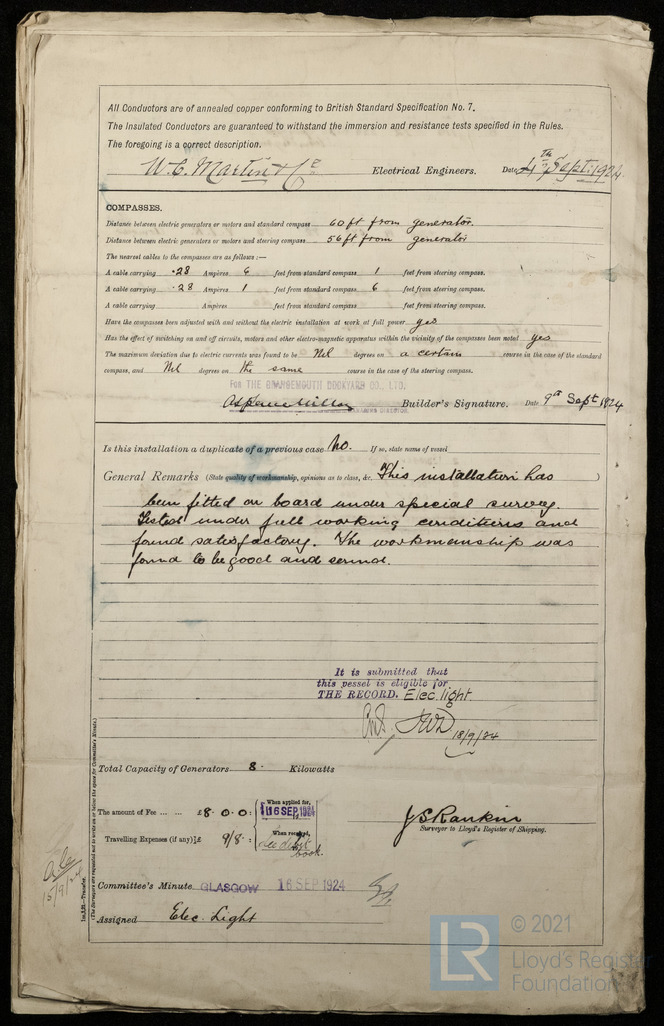 All Conductors are of annealed copper conforming to British Standard Specification No. 7.
The Insulated Conductors are guaranteed to withstand the immersion and resistance tests specified in the Rules.
The foregoing is a correct description.
W.C. Martin & Co Electrical Engineers. Date 4th Sept: 1924
COMPASSES.
Distance between electric generators or motors and standard compass 60 ft from generator.
Distance between electric generators or motors and steering compass 56 ft from generator
The nearest cables to the compasses are as follows:—
A cable carrying .28 Ampères 6 feet from standard compass 1 feet from steering compass.
A cable carrying .28 Ampères 1 feet from standard compass 6 feet from steering compass.
A cable carrying Ampères feet from standard compass feet from steering compass.
Have the compasses been adjusted with and without the electric installation at work at full power yes
Has the effect of switching on and off circuits, motors and other electro-magnetic apparatus within the vicinity of the compasses been noted yes
The maximum deviation due to electric currents was found to be Nil degrees on a certain course in the case of the standard
compass, and Nil degrees on the same course in the case of the steering compass.
FOR THE GRANGEMOUTH DOCKYARD CO., LTD.
Builder's Signature. Date 9th Sept 1924
DIRECTOR.
Is this installation a duplicate of a previous case No. If so, state name of vessel
General Remarks (State quality of workmanship, opinions as to class, &c. This installation has )
been fitted on board under special survey.
Tested under full working conditions and
found satisfactory. The workmanship was
found to be good and sound.
It is submitted that
this vessel is eligible for
THE RECORD. Elec. light
18/9/24
Total Capacity of Generators 8. Kilowatts
The amount of Fee ... ... £8-0-0: When applied for, 16 SEP 1924
J S Rankin
Surveyor to Lloyd's Register of Shipping.
Travelling Expenses (if any) £ 9/8: When received,
see debit book.
Committee's Minute GLASGOW 16 SEP 1924
Assigned Elec. Light
15/9/24
1m.5.21.—Transfer.
(The Surveyors are requested not to write on or below the space for Committee's Minute.)
LR
© 2021
Lloyd's Register
Foundation